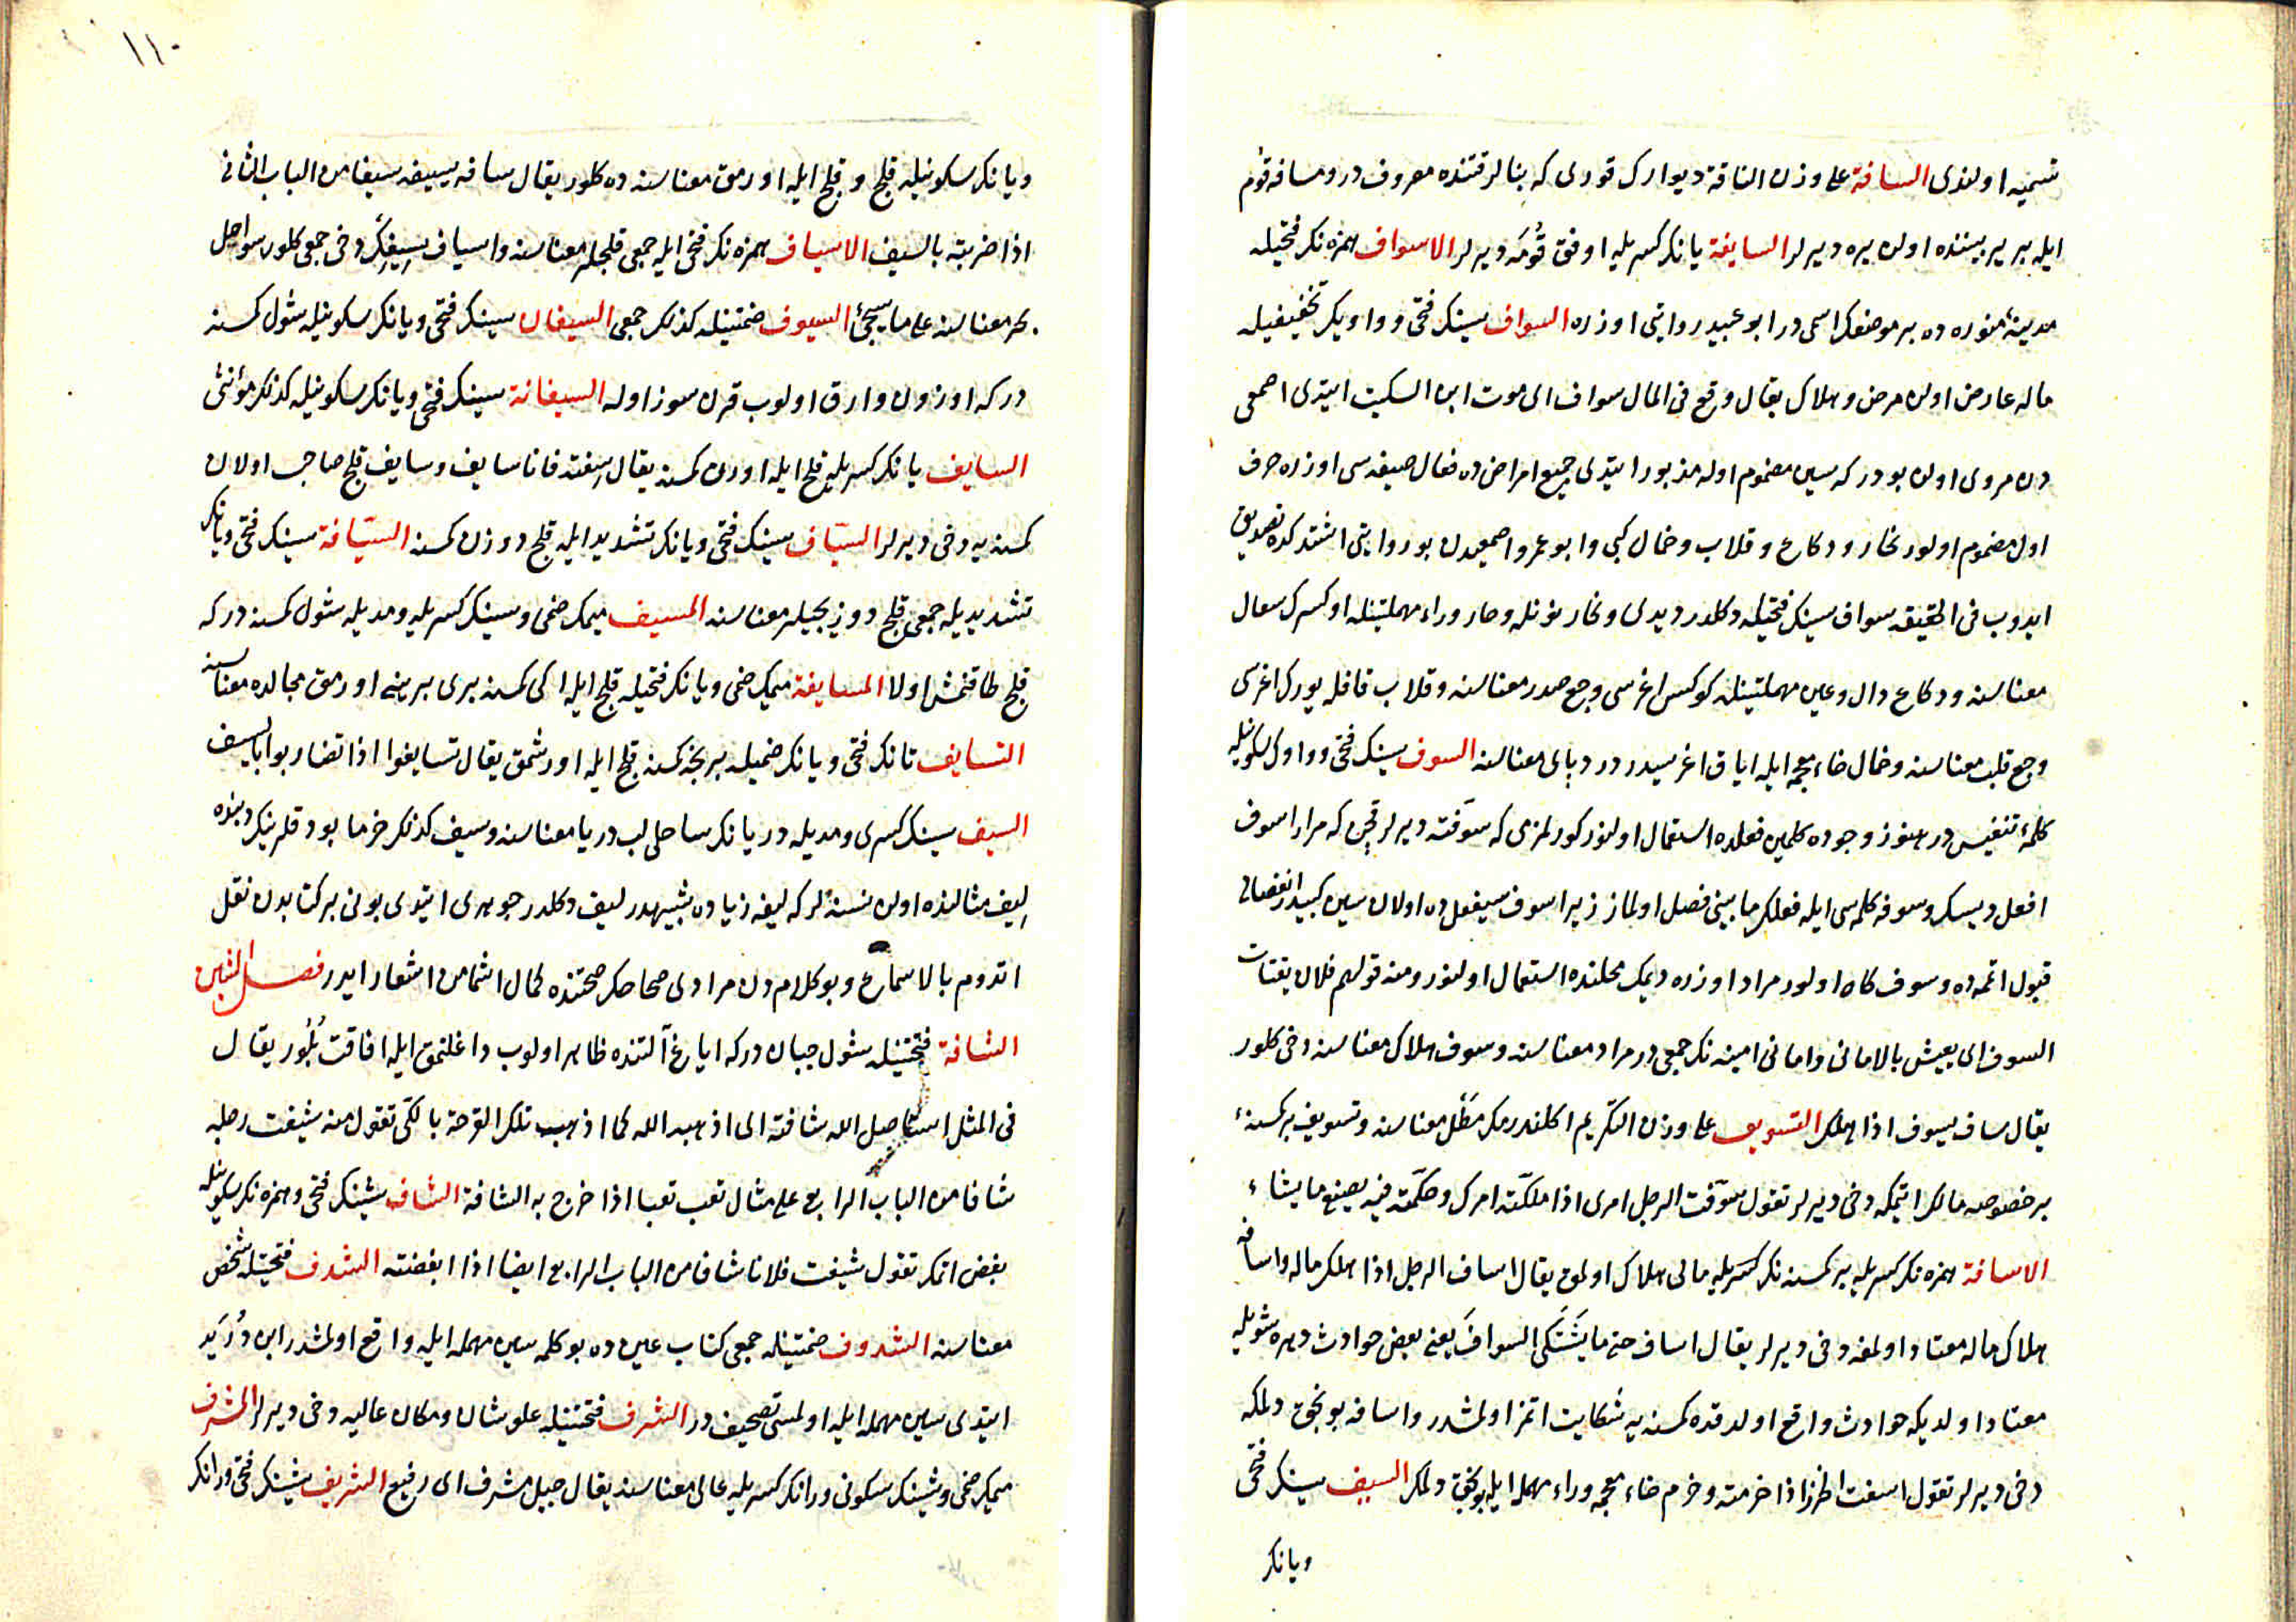 تسميه اولندى السافة على وزن الناقة ديوارك قورى كه بنالر قتنده معروفدر ومسافه قوم
ايله بر ير بيننده اولن يره ديرلر السايفة يانك كسريله اوفق قومه ديرلر الاسواف همزه نك فتحيله
مدينهٔ منوره ده بر موضعك اسمى در ابو عبيد روايتى اوزره السواف سينك فتحى وواويك تخفيفيله
ماله عارض اولن مرض وهلاك يقال وقع فى المال سواف اى موت ابن السكيت ايتدى اصمعى
دن مروى اولن بودركه سين مضموم اوله مذبور ايتدى جميع امراض ده فعال صيغه سى اوزره حرف
اول مضموم اولور نحاز ودكاع وقلاب وخمال كبى وابو عمرو اصمعيدن بو روايتى اشتدكده تصديق
ايدوب فى الحقيقه سواف سينك فتحيله دكلدر ديدى ونحاز نونله وحا وراء مهملتينله اوكسرك سعال
معناسنه ودكاع دال وعين مهملتينله كوكس اغرسى وجع صدر معناسنه وقلاب قافله يورك اغرسى
وجع قلب معناسنه وخمال خاء معجمه ايله اياق اغرسيدر درد پاى معناسنه السوف سينك فتحى وواوك سكونيله
كلمهٔ تنفيس در هنوز وجوده كلمين فعلده استعمال اولنور كورلمزمى كه سوفته ديرلر قچن كه مرارا سوف
افعل ديسك وسوفه كلمه سى ايله فعلك مابينى فصل اولماز زيرا سوف سيفعل ده اولان سين كبيدر انفصالى
قبول اتمه ده وسوف كاه اولور مراد اوزره ديمك محلنده استعمال اولنور ومنه قولهم فلان يقتات
السوف اى يعيش بالامانى وامانى امنيه نك جمعى در مراد معناسنه وسوف هلاك معناسنه دخى كلور
يقال ساف يسوف اذا هلك التسويف على وزن التكريم اكلندرمك مطل معناسنه وتسويف بر كمسنهٔ
بر خصوصه مالك اتمكه دخى ديرلر تقول سوفت الرجل امرى اذا ملكته امرك وحكمته فيه يصنع ما يشاء
الاسافة همزه نك كسريله بر كمسنه نك كسريله مالى هلاك اولمق يقال اساف الرجل اذا هلك ماله واسافه
هلاك ماله معتاد اولمغه دخى ديرلر يقال اساف حتى ما يشتكى السواف يعنى بعض حوادث دهره شويله
معتاد اولديكه حوادث واقع اولدقده كمسنه يه شكايت اتمز اولمشدر واسافه بوكجق دلمكه
دخى ديرلر تقول اسفت الخرز اذا خرمته وخرم خاء معجمه وراء مهمله ايله بوكجق دلمك السيف سينك فتحى
ويانك
١١٠
ويانك سكونيله قلج وقلج ايله اورمق معناسنه ده كلور يقال سافه يسيفه سيفا من الباب الثانى
اذا ضربته بالسيف الاسياف همزه نك فتحى ايله جمعى قلجلر معناسنه واسياف سيفك دخى جمعى كلور سواحل
بحر معناسنه على ما سيجئ السيوف ضمتينله كذلك جمعى السيفان سينك فتحى ويانك سكونيله شول كمسنه
دركه اوزون وارق اولوب قرن سوز اوله السيفانة سينك فتحى ويانك سكونيله كذلك مؤنثى
السايف يانك كسريله قلج ايله اورن كمسنه يقال سفته فانا سايف وسايف قلج صاحب اولان
كمسنه يه دخى ديرلر السياف سينك فتحى ويانك تشديد ايله قلج دوزن كمسنه السيافة سينك فتحى ويانك
تشديديله جمعى قلج دوزيجيلر معناسنه المسيف ميمك ضمى وسينك كسريله ومديله شول كمسنه دركه
قلج طاقنمش اولا المسايفة ميمك ضمى ويانك فتحيله قلج ايله ايكى كمسنه برى برينه اورمق مجالده معناسنه
التسايف تانك فتحى ويانك ضميله بر نجه كمسنه قلج ايله اورشمق يقال تسايفوا اذا تضاربوا بالسيف
السيف سينك كسرى ومديله دريانك ساحلى لب دريا معناسنه وسيف كذلك خرما بودقلرينك ديبنده
ليف مثالنده اولن نسنه لر كه ليفه زياده شبيهدر ليف دكلدر جوهرى ايتدى بونى بر كتابدن نقل
اتدوم بالاسماع وبو كلام دن مرادى صحاحك صحتنده كمال اشمامن اشعار ايدر فصل الشين
الشافة فتحتينله شول جبان دركه اياغ آلتنده ظاهر اولوب داغلنمق ايله افاقت بلور يقال
فى المثل استاصل الله شافته اى اذهبه الله كما اذهب تلك القرحة بالكى تقول منه شئفت رجله
شافا من الباب الرابع على مثال تعب تعبا اذا خرج به الشافة الشاف شينك فتحى وهمزه نك سكونيله
بغض اتمك تقول شئفت فلانا شافا من الباب الرابع ايضا اذا ابغضته الشدف فتحتينله شخص
معناسنه الشدوف ضمتينله جمعى كتاب عين ده بو كلمه سين مهمله ايله واقع اولمشدر ابن دريد
ايتدى سين مهمله ايله اولمسى تصحيف در الشرف فتحتينله علو شان ومكان عاليه دخى ديرلر المشرف
ميمك ضمى وشينك سكونى ورانك كسريله عالى معناسنه يقال جبل مشرف اى رفيع الشريف شينك فتحى ورانك